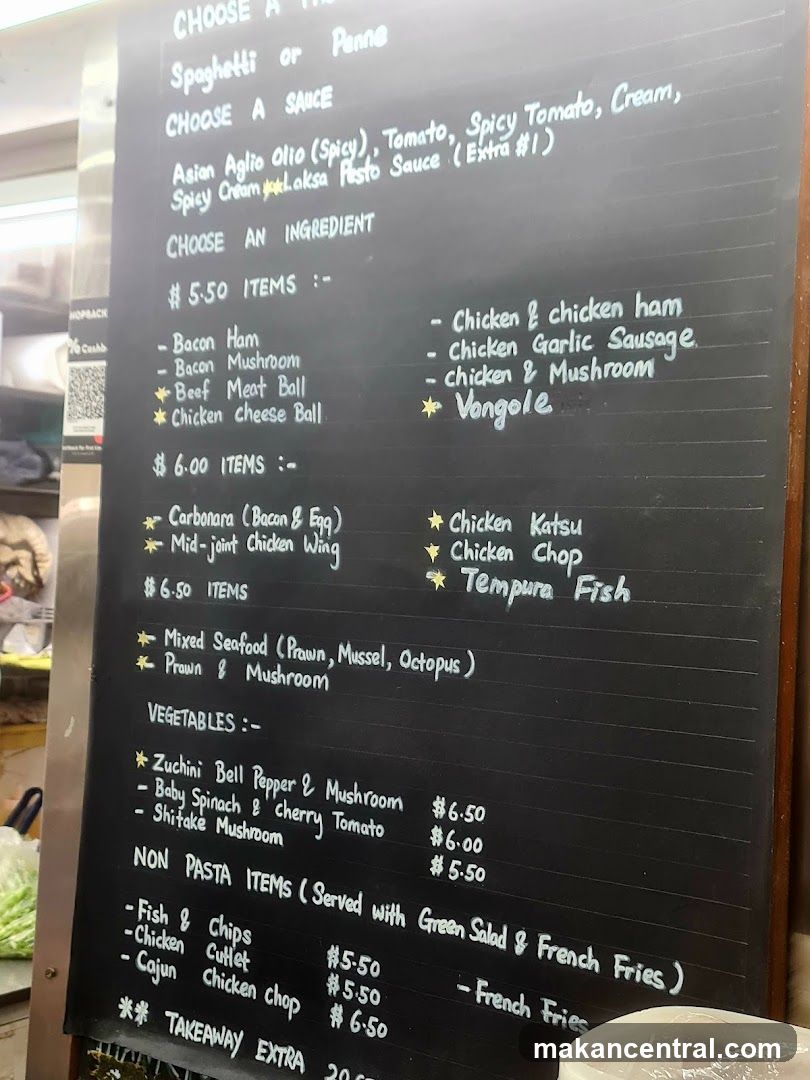 CHOOSE A
Spaghetti or Penne
CHOOSE A SAUCE
Asian Aglio Olio (Spicy), Tomato, Spicy Tomato, Cream,
Spicy Cream ** Laksa Pesto Sauce (Extra $1)
CHOOSE AN INGREDIENT
$ 5.50 ITEMS :-
- Bacon Ham
- Bacon Mushroom
Beef Meat Ball
Chicken Cheese Ball
- Chicken & chicken ham
- Chicken Garlic Sausage
- chicken & Mushroom
- Vongole
$ 6.00 ITEMS :-
- Carbonara (Bacon & Egg)
- Mid-joint Chicken Wing
Chicken Katsu
Chicken Chop
Tempura Fish
$ 6.50 ITEMS
- Mixed Seafood (Prawn, Mussel, Octopus)
- Prawn & Mushroom
VEGETABLES :-
Zuchini Bell Pepper & Mushroom $6.50
- Baby Spinach & Cherry Tomato $6.00
- Shitake Mushroom $5.50
NON PASTA ITEMS (Served with Green Salad & French Fries)
- Fish & Chips $5.50
- Chicken Cutlet $5.50
- Cajun Chicken Chop $6.50
- French Fries
** TAKEAWAY EXTRA
HOPBACK
% Cashb
makancentral.com